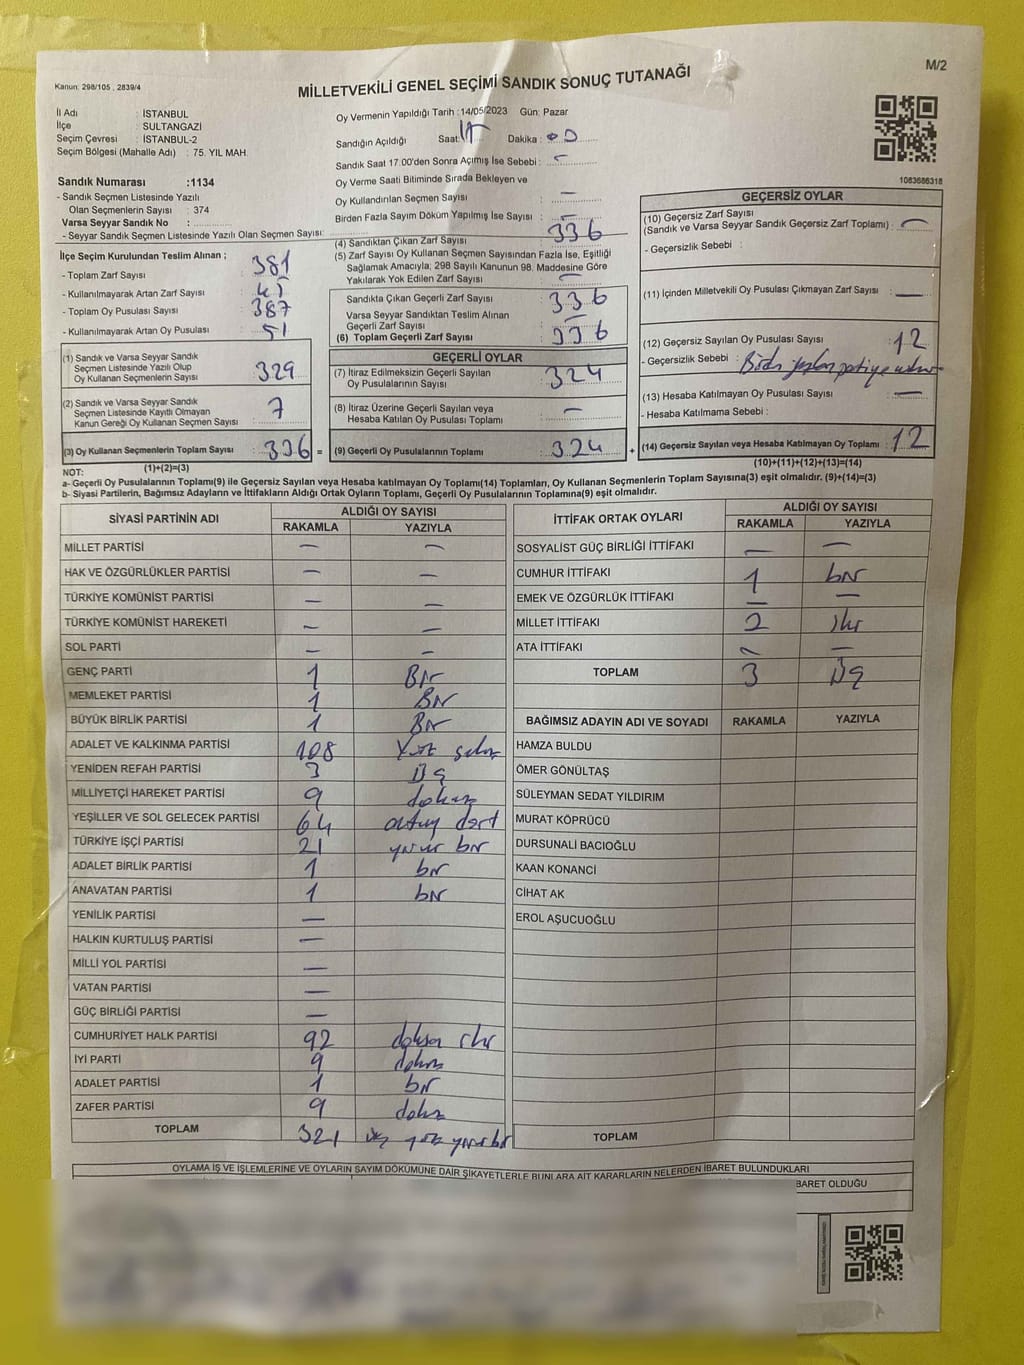 M/2
Kanun: 298/105 , 2839/4
MİLLETVEKİLİ GENEL SEÇİMİ SANDIK SONUÇ TUTANAĞI
İl Adı : İSTANBUL
İlçe : SULTANGAZİ
Seçim Çevresi : İSTANBUL-2
Seçim Bölgesi (Mahalle Adı) : 75. YIL MAH.
Sandık Numarası :1134
- Sandık Seçmen Listesinde Yazılı
Olan Seçmenlerin Sayısı : 374
Varsa Seyyar Sandık No :
- Seyyar Sandık Seçmen Listesinde Yazılı Olan Seçmen Sayısı:
Oy Vermenin Yapıldığı Tarih :14/05/2023 Gün: Pazar
Sandığın Açıldığı Saat: 17 Dakika :
Sandık Saat 17.00'den Sonra Açmış İse Sebebi : -
Oy Verme Saati Bitiminde Sırada Bekleyen ve
Oy Kullandırılan Seçmen Sayısı —
Birden Fazla Sayım Döküm Yapılmış İse Sayısı : -
1083686318
İlçe Seçim Kurulundan Teslim Alınan ;
- Toplam Zarf Sayısı : 381
- Kullanılmayarak Artan Zarf Sayısı : 45
- Toplam Oy Pusulası Sayısı : 387
- Kullanılmayarak Artan Oy Pusulası : 51
(1) Sandık ve Varsa Seyyar Sandık
Seçmen Listesinde Yazılı Olup
Oy Kullanan Seçmenlerin Sayısı : 329
(2) Sandık ve Varsa Seyyar Sandık
Seçmen Listesinde Kayıtlı Olmayan
Kanun Gereği Oy Kullanan Seçmen Sayısı : 7
(3) Oy Kullanan Seçmenlerin Toplam Sayısı : 336 =
(1)+(2)=(3)
(4) Sandıktan Çıkan Zarf Sayısı : 336
(5) Zarf Sayısı Oy Kullanan Seçmen Sayısından Fazla İse, Eşitliği
Sağlamak Amacıyla; 298 Sayılı Kanunun 98. Maddesine Göre
Yakılarak Yok Edilen Zarf Sayısı : —
Sandıkta Çıkan Geçerli Zarf Sayısı : 336
Varsa Seyyar Sandıktan Teslim Alınan
Geçerli Zarf Sayısı : —
(6) Toplam Geçerli Zarf Sayısı : 336
GEÇERLİ OYLAR
(7) İtiraz Edilmeksizin Geçerli Sayılan
Oy Pusulalarının Sayısı : 324
(8) İtiraz Üzerine Geçerli Sayılan veya
Hesaba Katılan Oy Pusulası Toplamı : —
(9) Geçerli Oy Pusulalarının Toplamı : 324 +
GEÇERSİZ OYLAR
(10) Geçersiz Zarf Sayısı
(Sandık ve Varsa Seyyar Sandık Geçersiz Zarf Toplamı) : —
- Geçersizlik Sebebi :
(11) İçinden Milletvekili Oy Pusulası Çıkmayan Zarf Sayısı : —
(12) Geçersiz Sayılan Oy Pusulası Sayısı : 12
- Geçersizlik Sebebi :
(13) Hesaba Katılmayan Oy Pusulası Sayısı : —
- Hesaba Katılmama Sebebi :
(14) Geçersiz Sayılan veya Hesaba Katılmayan Oy Toplamı : 12
(10)+(11)+(12)+(13)=(14)
NOT:
a- Geçerli Oy Pusulalarının Toplamı(9) ile Geçersiz Sayılan veya Hesaba katılmayan Oy Toplamı(14) Toplamları, Oy Kullanan Seçmenlerin Toplam Sayısına(3) eşit olmalıdır. (9)+(14)=(3)
b- Siyasi Partilerin, Bağımsız Adayların ve İttifakların Aldığı Ortak Oyların Toplamı, Geçerli Oy Pusulalarının Toplamına(9) eşit olmalıdır.
SİYASİ PARTİNİN ADI ALDIĞI OY SAYISI
RAKAMLA YAZIYLA
MİLLET PARTİSİ — —
HAK VE ÖZGÜRLÜKLER PARTİSİ — —
TÜRKİYE KOMÜNİST PARTİSİ — —
TÜRKİYE KOMÜNİST HAREKETİ — —
SOL PARTİ — —
GENÇ PARTİ 1 Bir
MEMLEKET PARTİSİ 1 Bir
BÜYÜK BİRLİK PARTİSİ 1 Bir
ADALET VE KALKINMA PARTİSİ 108 Yüz sekiz
YENİDEN REFAH PARTİSİ 3 Üç
MİLLİYETÇİ HAREKET PARTİSİ 9 dokuz
YEŞİLLER VE SOL GELECEK PARTİSİ 64 altmış dört
TÜRKİYE İŞÇİ PARTİSİ 21 yirmi bir
ADALET BİRLİK PARTİSİ 1 bir
ANAVATAN PARTİSİ 1 bir
YENİLİK PARTİSİ —
HALKIN KURTULUŞ PARTİSİ —
MİLLİ YOL PARTİSİ —
VATAN PARTİSİ —
GÜÇ BİRLİĞİ PARTİSİ —
CUMHURİYET HALK PARTİSİ 92 doksan iki
İYİ PARTİ 9 dokuz
ADALET PARTİSİ 1 bir
ZAFER PARTİSİ 9 dokuz
TOPLAM 321 üç yüz yirmi bir
İTTİFAK ORTAK OYLARI ALDIĞI OY SAYISI
RAKAMLA YAZIYLA
SOSYALİST GÜÇ BİRLİĞİ İTTİFAKI — —
CUMHUR İTTİFAKI 1 bir
EMEK VE ÖZGÜRLÜK İTTİFAKI — —
MİLLET İTTİFAKI 2 iki
ATA İTTİFAKI — —
TOPLAM 3 Üç
BAĞIMSIZ ADAYIN ADI VE SOYADI RAKAMLA YAZIYLA
HAMZA BULDU
ÖMER GÖNÜLTAŞ
SÜLEYMAN SEDAT YILDIRIM
MURAT KÖPRÜCÜ
DURSUNALİ BACIOĞLU
KAAN KONANCİ
CİHAT AK
EROL AŞUCUOĞLU
TOPLAM
OYLAMA İŞ VE İŞLEMLERİNE VE OYLARIN SAYIM DÖKÜMÜNE DAİR ŞİKAYETLERLE BUNLARA AİT KARARLARIN NELERDEN İBARET BULUNDUKLARI
BARET OLDUĞU